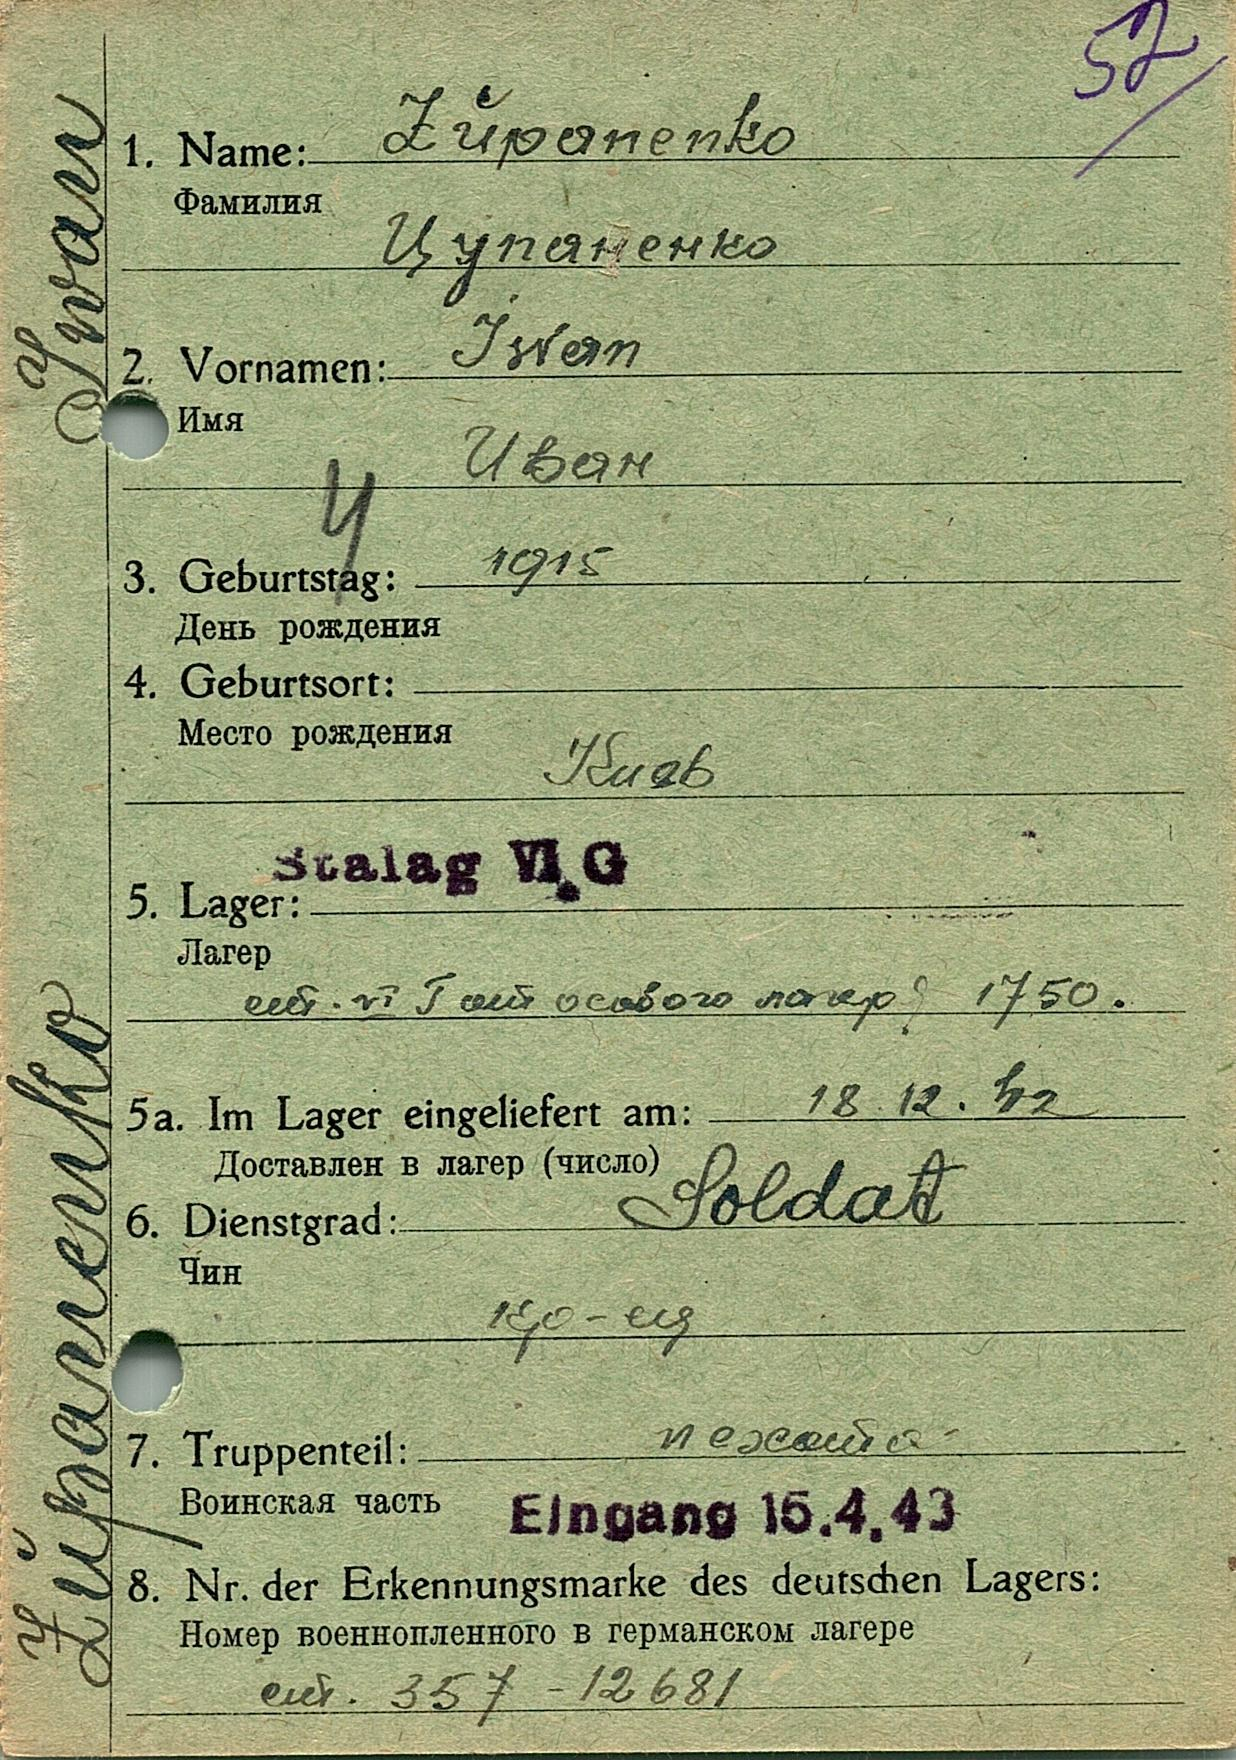 57
1. Name: Županenko
Фамилия
Цупаненко
2. Vornamen: Iwan
Имя
Иван
Ч
3. Geburtstag: 1915
День рождения
4. Geburtsort:
Место рождения
Киев
Stalag VI G
5. Lager:
Лагер
шт. VI Г от особого лагер 1750.
5a. Im Lager eingeliefert am: 18.12.42
Доставлен в лагер (число)
6. Dienstgrad: Soldat
Чин
кр-ец
7. Truppenteil: пехота
Воинская часть
Eingang 15.4.43
8. Nr. der Erkennungsmarke des deutschen Lagers:
Номер военнопленного в германском лагере
шт. 357 - 12681
Županenko Iwan